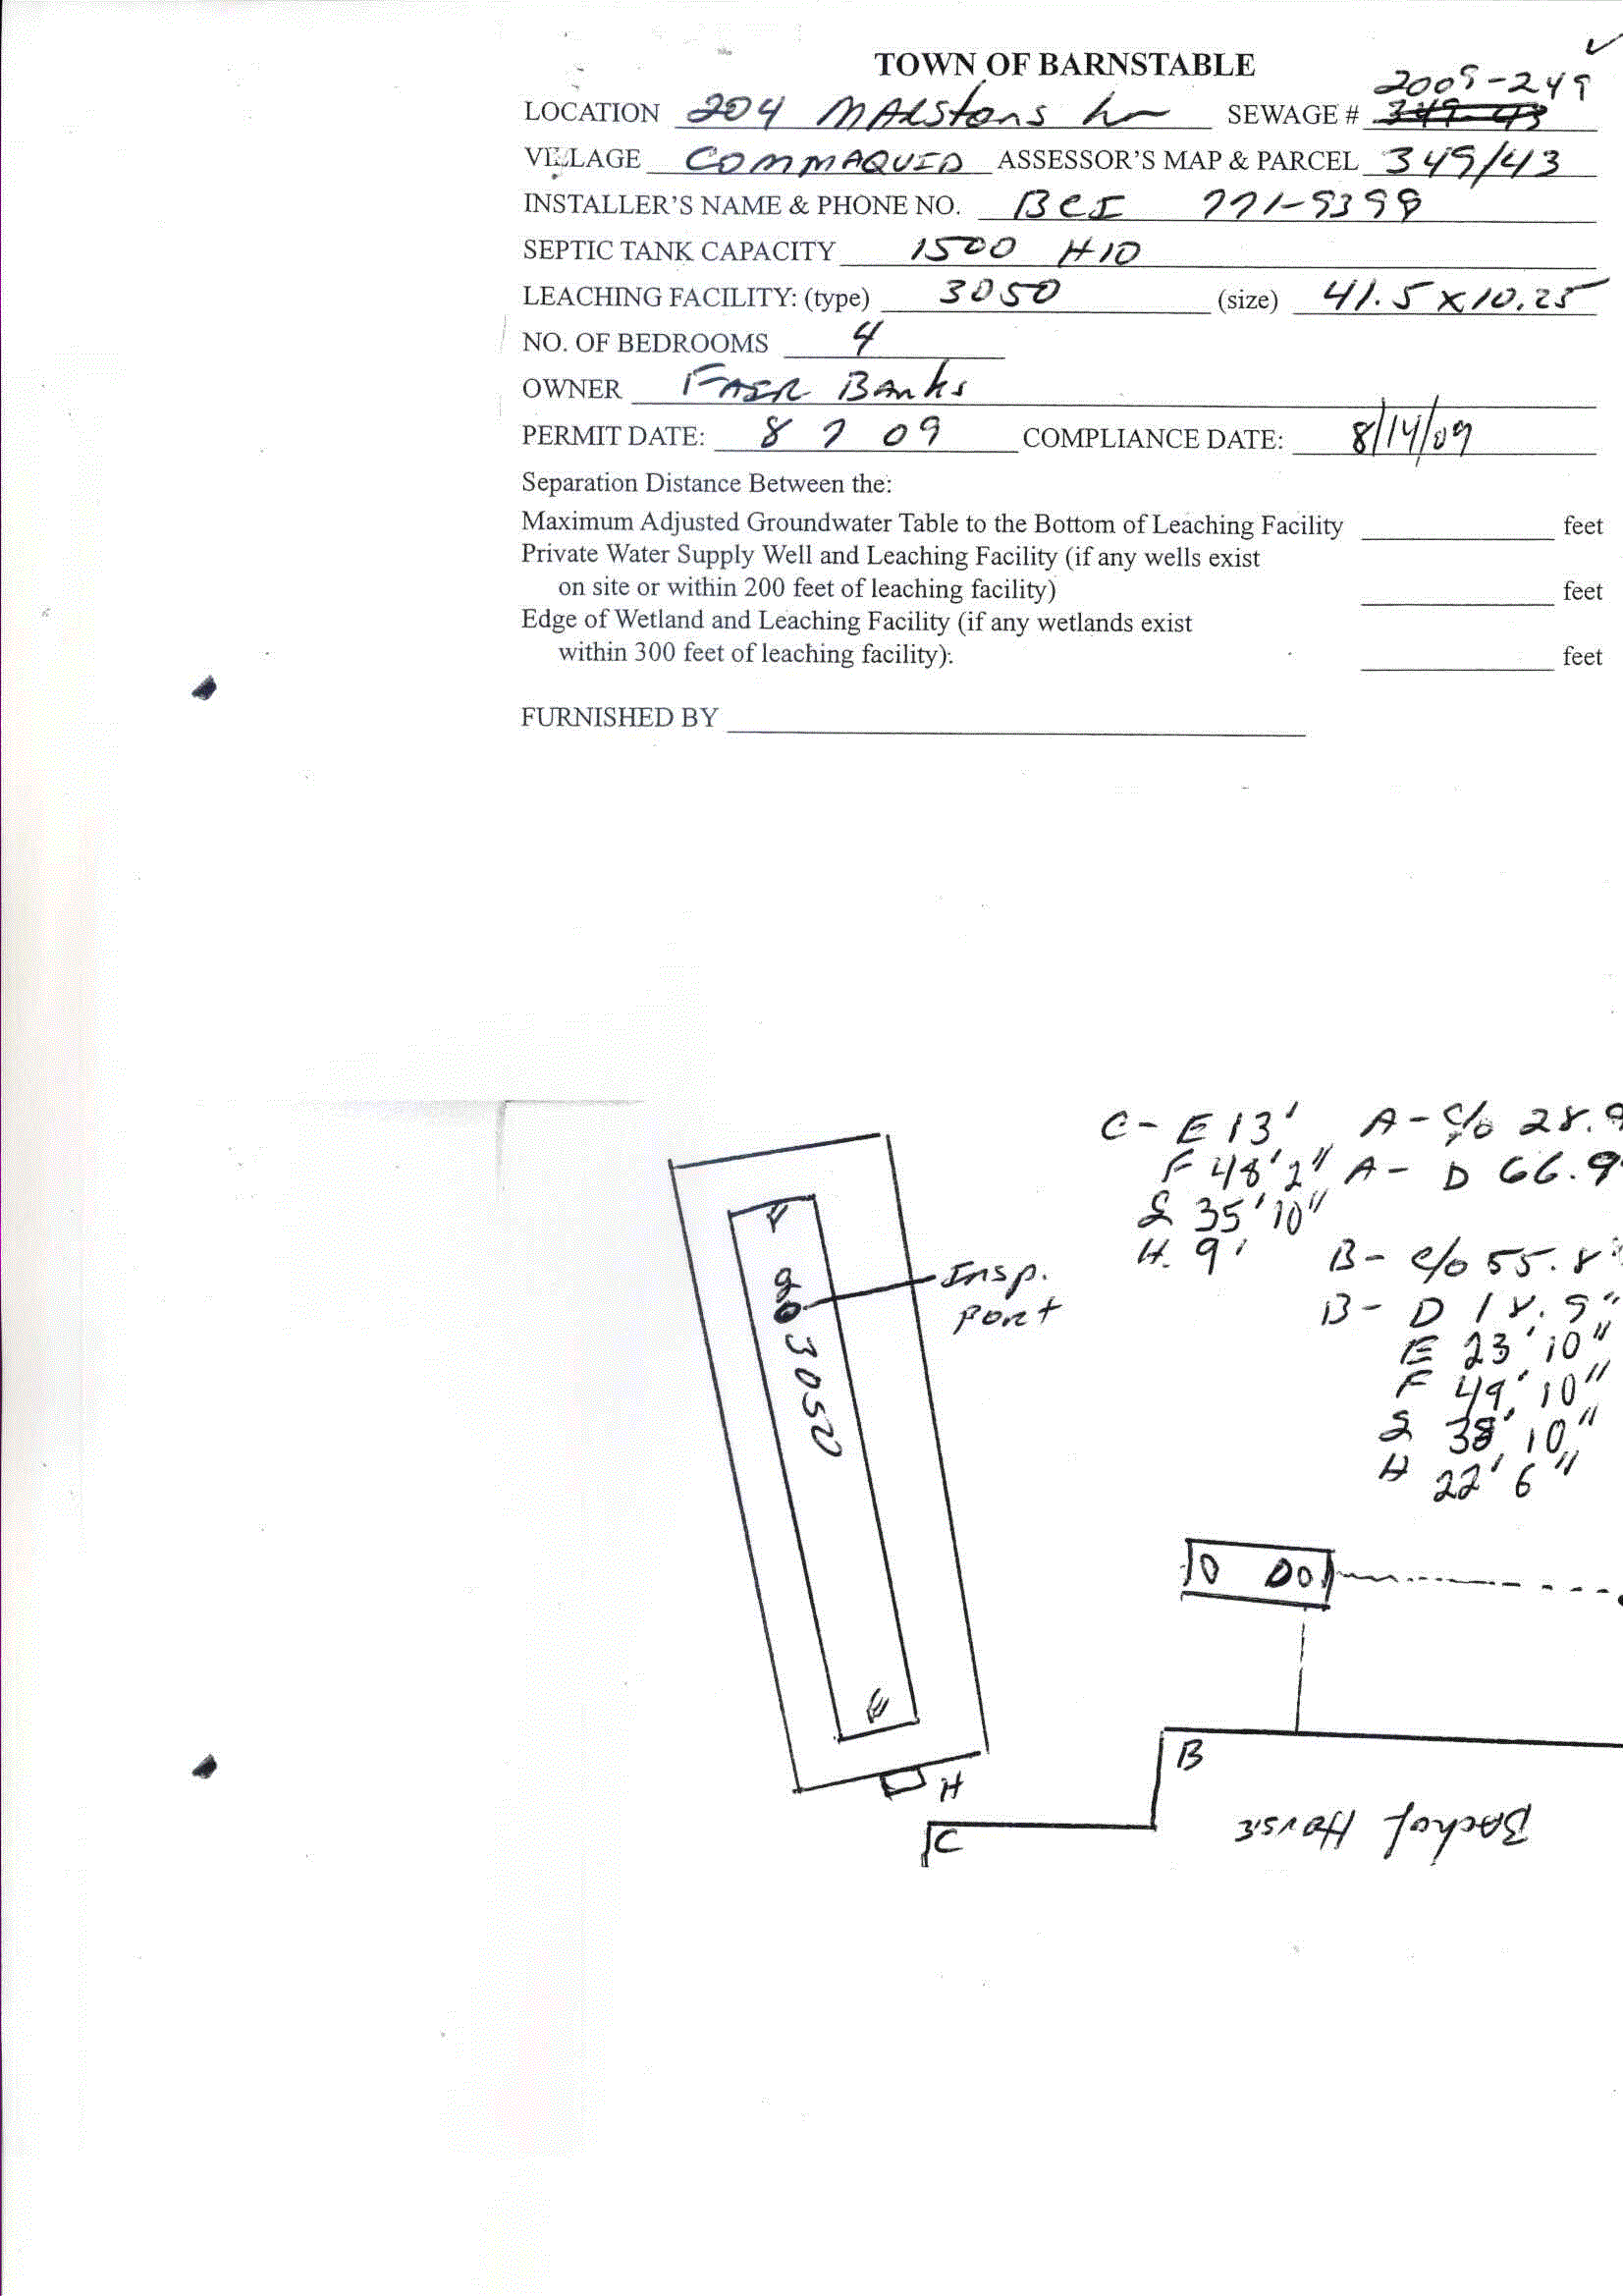 TOWN OF BARNSTABLE
2009-249
LOCATION 204 MARStons Ln SEWAGE # 349-43
VILLAGE COMMAQUID ASSESSOR'S MAP & PARCEL 349/43
INSTALLER'S NAME & PHONE NO. BCI 771-9399
SEPTIC TANK CAPACITY 1500 H10
LEACHING FACILITY: (type) 3050 (size) 41.5 x 10.25
NO. OF BEDROOMS 4
OWNER FAIR Banks
PERMIT DATE: 8 7 09 COMPLIANCE DATE: 8/14/09
Separation Distance Between the:
Maximum Adjusted Groundwater Table to the Bottom of Leaching Facility feet
Private Water Supply Well and Leaching Facility (if any wells exist
on site or within 200 feet of leaching facility) feet
Edge of Wetland and Leaching Facility (if any wetlands exist
within 300 feet of leaching facility). feet
FURNISHED BY
C - E 13' A - c/o 28.9
F 48'2" A - D 66.9
G 35'10"
H. 9' B - c/o 55.8
B - D 18.9"
E 23'10"
F 49'10"
G 38'10"
H 22'6"
Insp.
Port
F
G
3050
E
O DO
H
B
C
Back of House